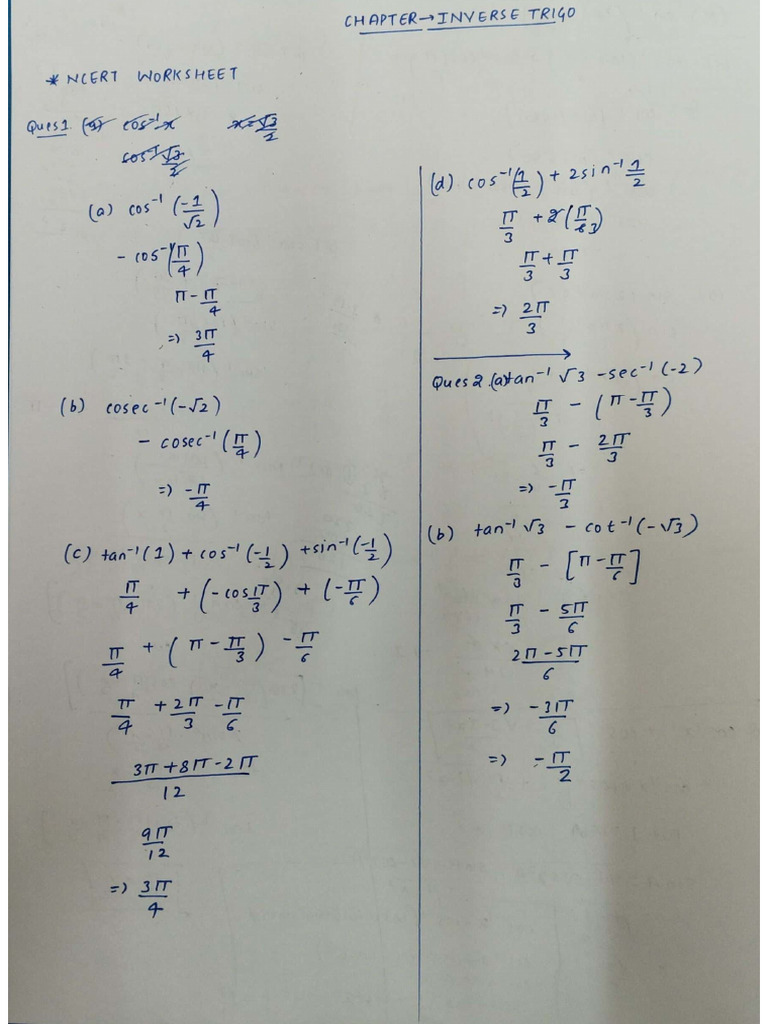 CHAPTER → INVERSE TRIGO
* NCERT WORKSHEET
Ques 1. (a) cos⁻¹ x x = √3/2
cos⁻¹ √3/2
(a) cos⁻¹ (-1/√2)
- cos⁻¹(π/4)
π - π/4
=> 3π/4
(b) cosec⁻¹(-√2)
- cosec⁻¹ (π/4)
=> -π/4
(c) tan⁻¹(1) + cos⁻¹(-1/2) + sin⁻¹(-1/2)
π/4 + (-cos π/3) + (-π/6)
π/4 + (π - π/3) - π/6
π/4 + 2π/3 - π/6
3π + 8π - 2π / 12
9π/12
=> 3π/4
(d) cos⁻¹(1/2) + 2sin⁻¹ 1/2
π/3 + 2(π/6 3)
π/3 + π/3
=> 2π/3
Ques 2. (a) tan⁻¹ √3 - sec⁻¹ (-2)
π/3 - (π - π/3)
π/3 - 2π/3
=> -π/3
(b) tan⁻¹ √3 - cot⁻¹ (-√3)
π/3 - [π - π/6]
π/3 - 5π/6
2π - 5π / 6
=> -3π/6
=> -π/2